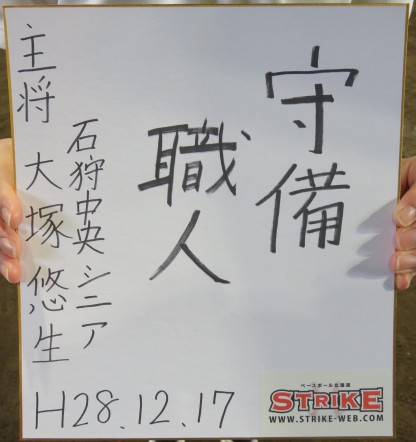 守備
職人
石狩中央シニア
主将 大塚悠生
H28.12.17
ベースボール北海道
STRIKE
WWW.STRIKE-WEB.COM